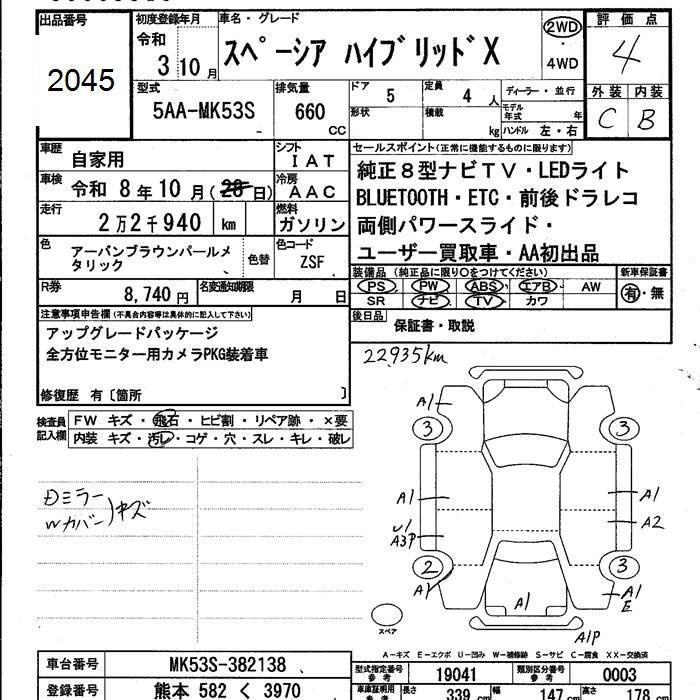 出品番号
2045
初度登録年月
令和
3 10 月
車名・グレード
スペーシア ハイブリッドX
2WD
・
4WD
評価点
4
型式
5AA-MK53S
排気量
660
CC
ドア
5
定員
4 人
ディーラー・並行
外装 内装
C B
形状
積載
kg
モデル年式
年
ハンドル 左・右
車歴
自家用
シフト
IAT
セールスポイント(正常に機能するものに限ります)
純正8型ナビTV・LEDライト
BLUETOOTH・ETC・前後ドラレコ
両側パワースライド・
ユーザー買取車・AA初出品
車検
令和 8年10月(28日)
冷房
AAC
走行
2万2千940 km
燃料
ガソリン
色
アーバンブラウンパールメ
タリック
色替
色コード
ZSF
装備品 (純正品に限り○をつけてください)
新車保証書
PS PW ABS エアB AW
有・無
SR ナビ TV カワ
R券
8,740円
名変通知期限
月 日
後日品
保証書・取説
注意事項申告欄(不具合内容等は具体的に記入して下さい)
アップグレードパッケージ
全方位モニター用カメラPKG装着車
修復歴 有〔箇所 〕
22,935km
検査員
記入欄
FW キズ・飛石・ヒビ割・リペア跡・×要
内装 キズ・汚レ・コゲ・穴・スレ・キレ・破レ
A1
3 3
A1 A1
A2
U1
A3P
2 3
A1
A1
E
A1
スペア
A1P
A-キズ E-エクボ U-凹み W-補修跡 S-サビ C-腐食 XX-交換済
車台番号
MK53S-382138
型式指定番号
参考
19041
類別区分番号
参考
0003
登録番号
熊本 582 く 3970
車庫証明用
参考
長さ
339 cm
幅
147 cm
高さ
178 cm